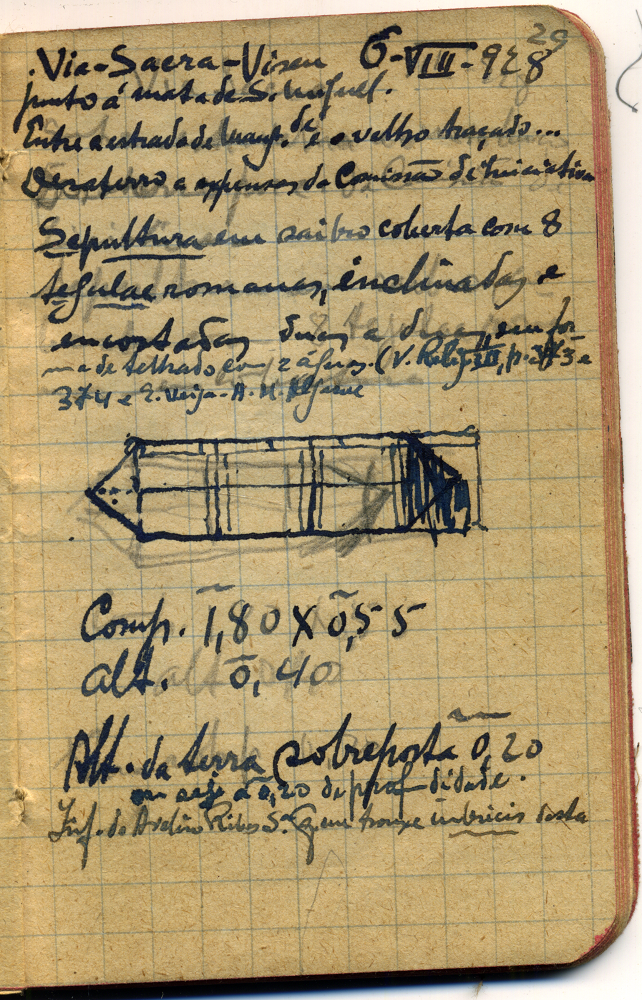 29
Via-Sacra-Viseu 6-VIII-928
junto á mata de S. Miguel.
Entre a estrada de e o velho traçado...
Desaterro a expensas da Comissão de Iniciativa
Sepultura em saibro coberta com 8
tegulae romanas, inclinadas e
encostadas duas a duas, em for
ma de telhado com 2 águas. (V. Relig. III, p. 373 e
374 e E. Veiga - A. M. Algarve
Comp. 1,80 X 0,55
alt. 0,40
Alt. da terra sobreposta 0,20
ou seja a 0,20 de profundidade.
Inf. do Avelino Ribeiro S.ª que trouxe imbricis desta